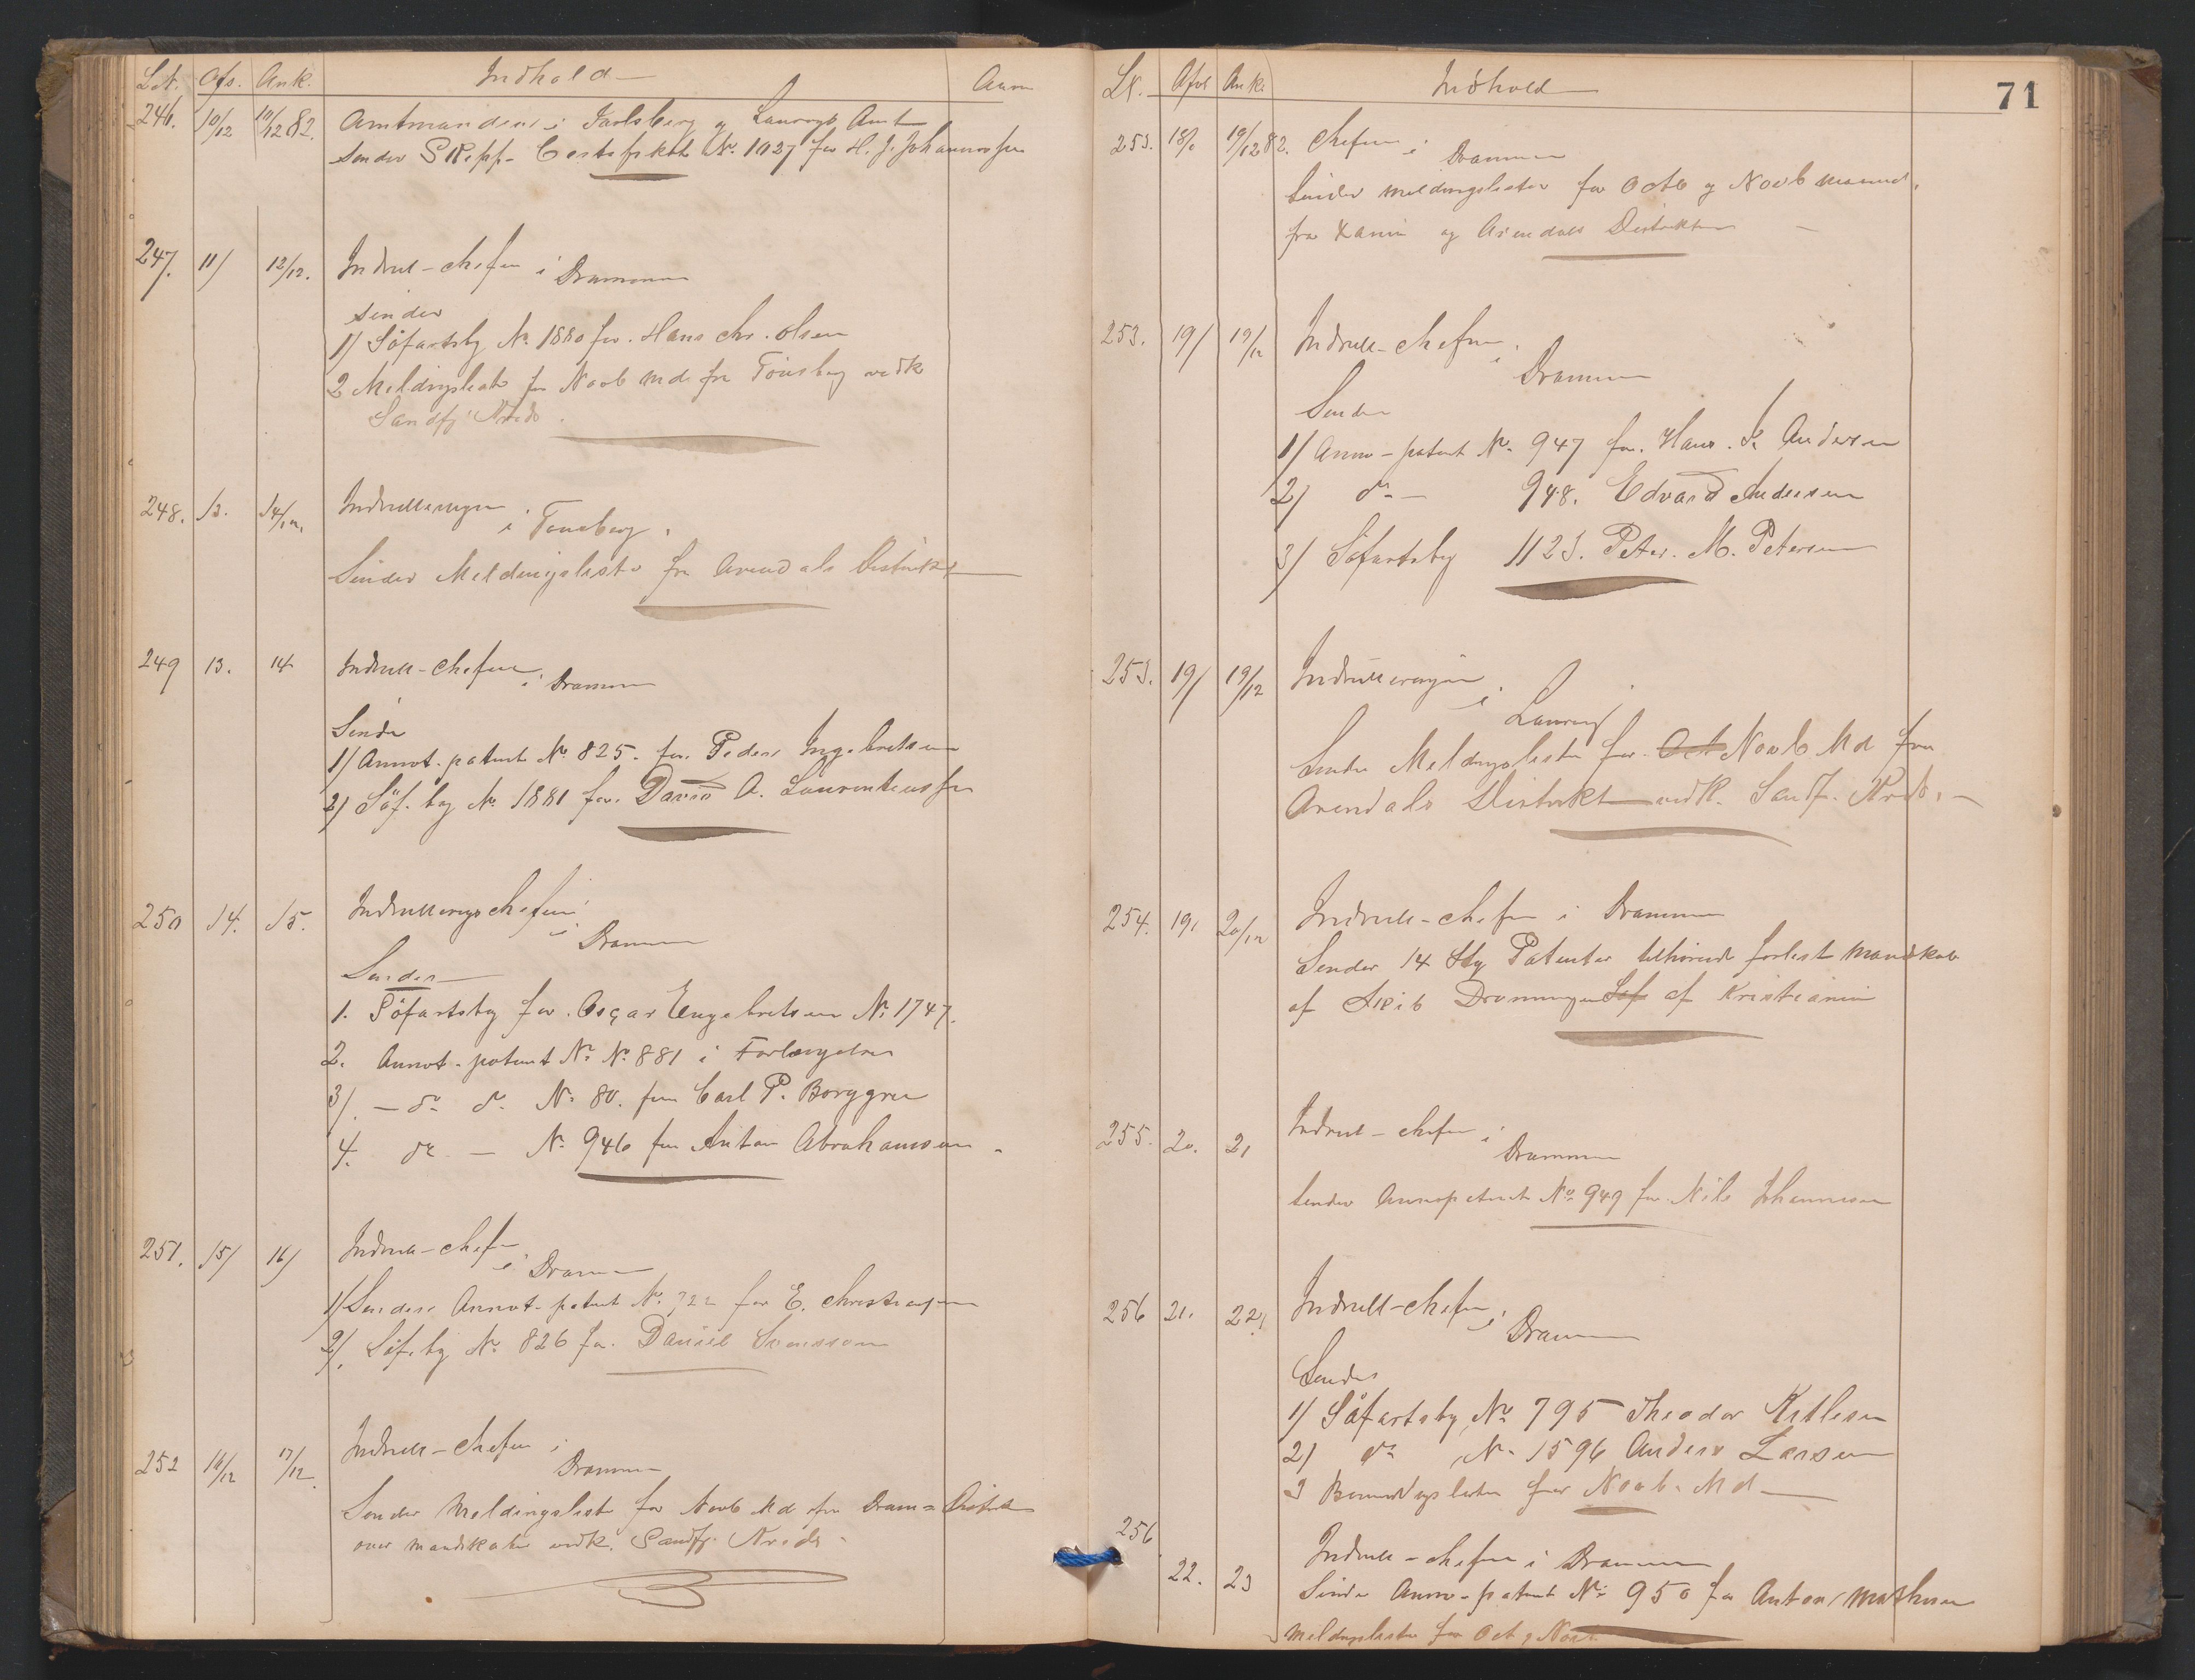 Lt. Afs. Ank. Indhold Anm
246. 10/12 11/12 82. Amtmanden i Jarlsberg og Laurvigs Amt
sender Skipp- Certifikat No. 1027 for H. J. Johannessen
247. 11/ 12/12. Indrul-chefen i Drammen
sender
1) Söfartsbg No 1880 for Hans Chr. Olsen
2 Meldingsliste for Novb Md. fra Tönsberg vedk
Sandfj. Krds.
248. 13. 14/12. Indrulleringen
i Tønsberg.
Sender Meldingsliste fra Arendals Distrikt
249 13. 14 Indrull-Chefen
i Drammen
Sender
1) Annot. patent No 825. for Peder Ingebretsen
2) Söf. bog No 1881 for David A. Laurentiussen
250 14. 15. Indrulleringschefen
i Drammen
Sender
1. Söfartsbg for Oscar Engebretsen No 1747.
2. Annot-patent No No 881 i Forlængelse
3) - do do No 80. for Carl P. Borggren
4. do - No 946 for Anton Abrahamsen
251. 15/ 16/ Indrull-chefen
i Drammen
1) Sender Annot-patent No 722 for E. Christiansen
2). Söf. bg No 826 for Daniel
252 16/12 17/12. Indrull-chefen i
Drammen
Sender Meldingsliste for Novb Md fra Dram= Distrikt
over mandskaber vedk. Sandfj. Krds
71
Lt. Afs Ank. Indhold
253. 18/ 19/12 82. Chefen i
Drammen
Sender meldingslister for Octb og Novb maaned.
fra Xania og Arendals Distrikter
253. 19/ 19/12 Indrull-Chefen
i Drammen
Sender
1) Anno-patent No 947 for Hans Andersen
2) do - 948. Edvard Andersen
3) Söfartsbg 1123. Peter M. Petersen
253. 19/ 19/12 Indrulleringen
i Laurvig
Sender Meldingsliste for Oct Novb Md fra
Arendals Distrikt vedk. Sandf. Krds.
254. 19/ 20/12 Indrull-chefen i Drammen
Sender 14 Stk Patenter tilhørende forlist Mandskab
af Skib Dronningen Sof af Kristiania
255. 20. 21 Indrul-chefen i
Drammen
Sender Annopatent No 949 for Nils Johannesen
256 21. 22/ Indrull-chefen
i Drammen
Sender
1) Söfartsbg No 795 Theodor Kitilsen
2) do No 1596 Anders Larsen
3 lister for Novb. Md
256 22. 23 Indrull-chefen i Drammen
Sender Anno-patent No 950 for Anton Mathisen
Meldingsliste for Oct, Nov